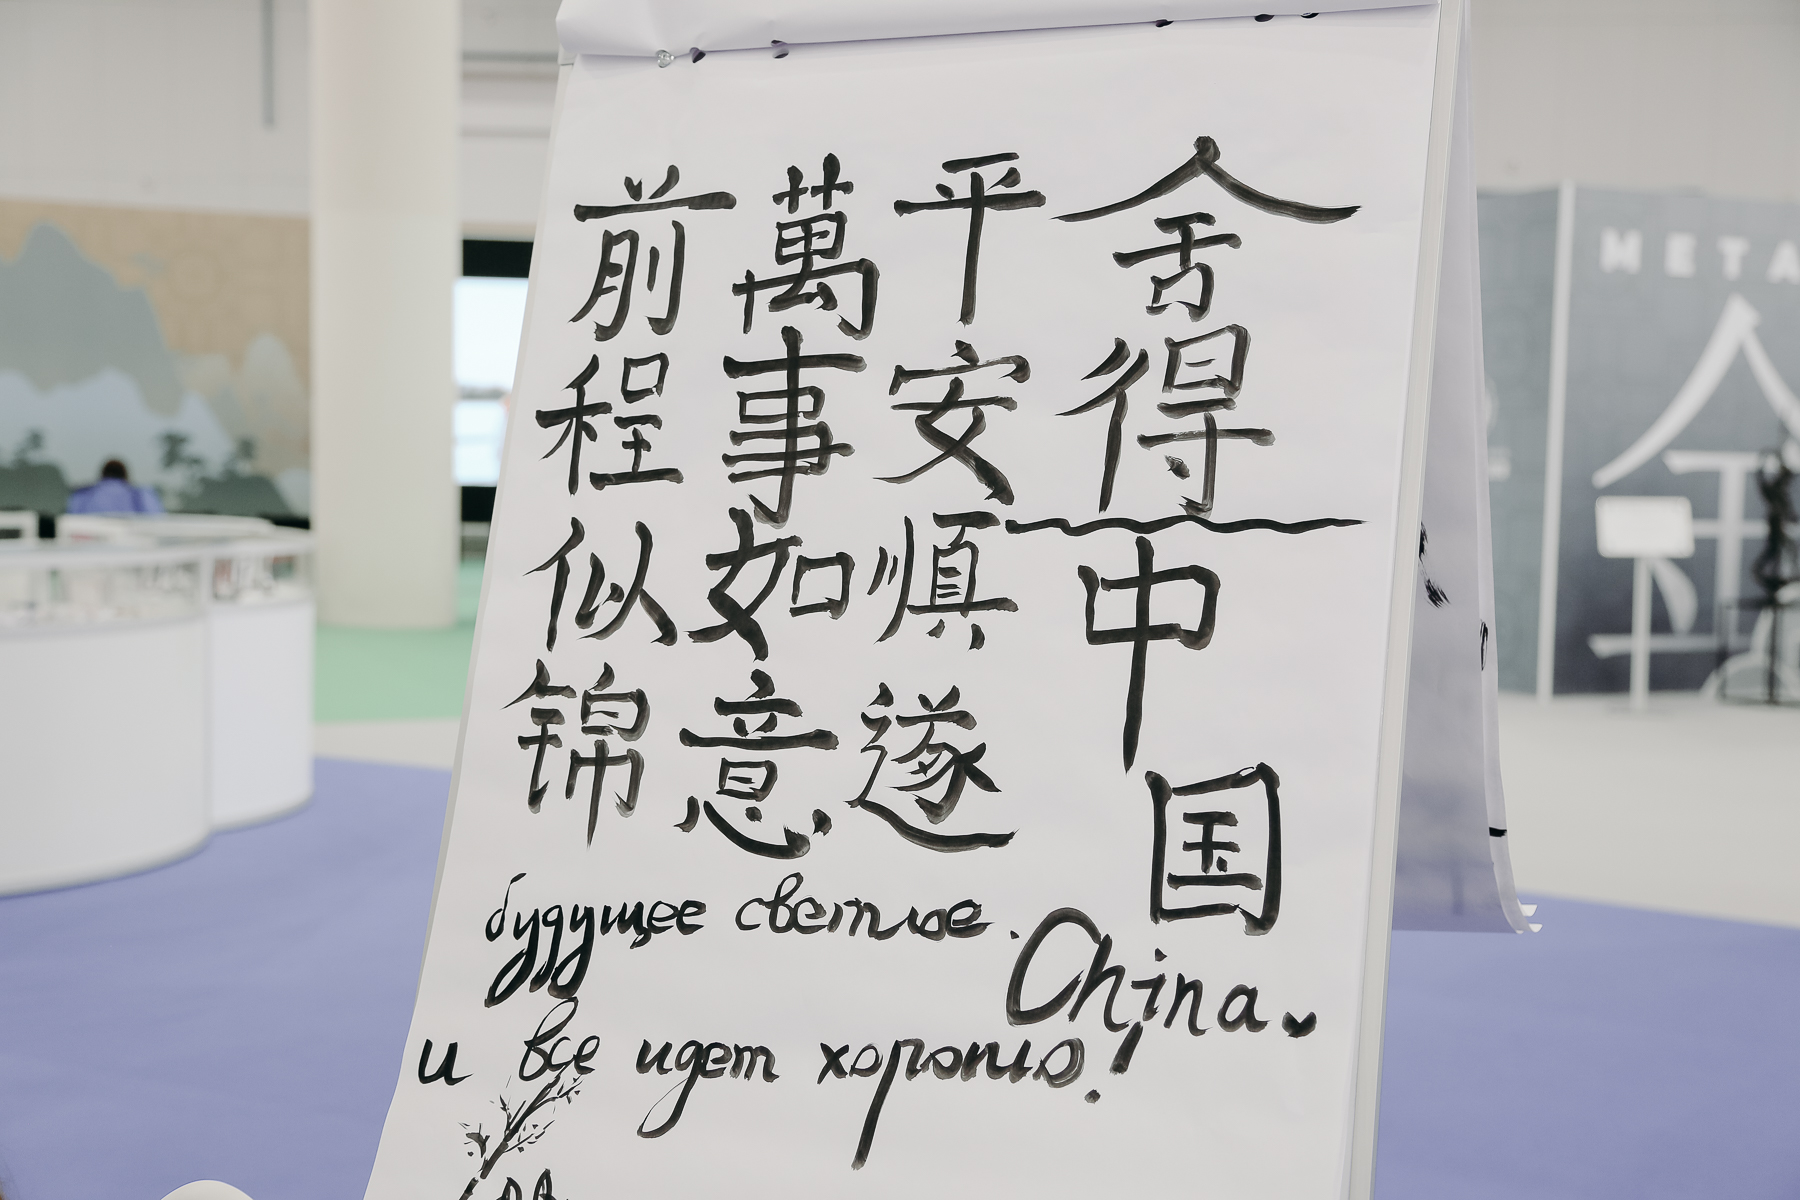 舍得
中国
China
平安順遂
萬事如意
前程似锦
будущее светлое.
и все идет хорошо!
META
金